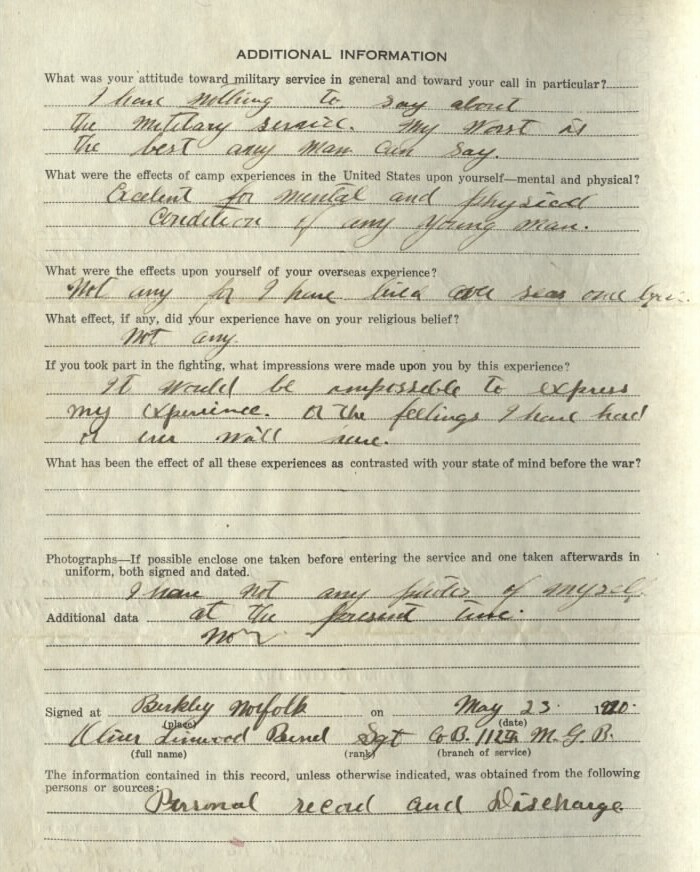 ADDITIONAL INFORMATION
What was your attitude toward military service in general and toward your call in particular?
I have nothing to say about
the military service. My Worst is
the best any man can say.
What were the effects of camp experiences in the United States upon yourself—mental and physical?
Excelent for mental and physical
Condition of any young man.
What were the effects upon yourself of your overseas experience?
Not any for I have over seas
What effect, if any, did your experience have on your religious belief?
Not any.
If you took part in the fighting, what impressions were made upon you by this experience?
It would be impossible to express
my experience. or the feelings I have had
or ever will
What has been the effect of all these experiences as contrasted with your state of mind before the war?
Photographs—If possible enclose one taken before entering the service and one taken afterwards in
uniform, both signed and dated.
I have not any of myself
Additional data at the present time.
Signed at Berkley Norfolk on May 23 1920.
(place) (date)
Linwood Sgt Co B. M. G. B.
(full name) (rank) (branch of service)
The information contained in this record, unless otherwise indicated, was obtained from the following
persons or sources:
Personal record and Discharge